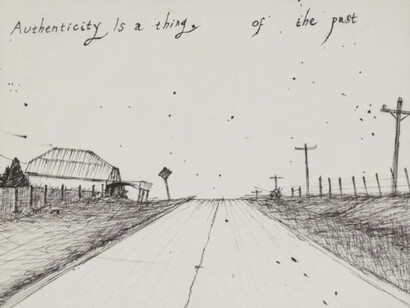 Authenticity Is a thing. of the past